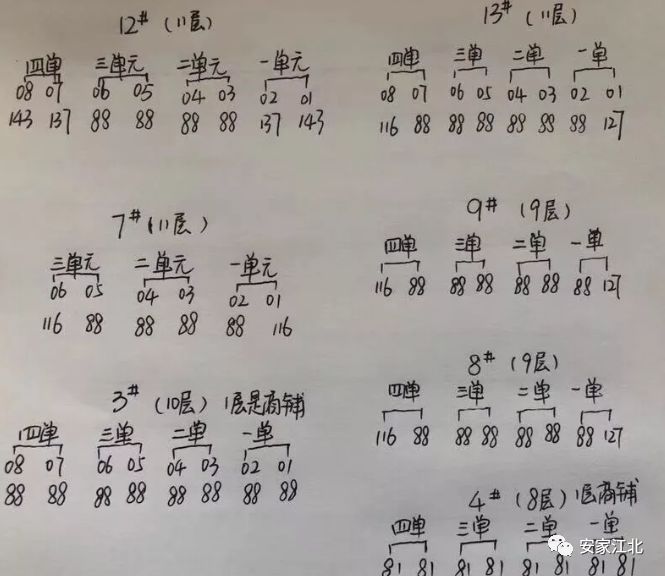 12# (11层)
四单 三单元 二单元 一单元
08 07 06 05 04 03 02 01
143 137 88 88 88 88 137 143
13# (11层)
四单 三单 二单 一单
08 07 06 05 04 03 02 01
116 88 88 88 88 88 88 127
7# (11层)
三单元 二单元 一单元
06 05 04 03 02 01
116 88 88 88 88 116
9# (9层)
四单 三单 二单 一单
116 88 88 88 88 88 88 127
8# (9层)
四单 三单 二单 一单
116 88 88 88 88 88 88 127
3# (10层) 1层是商铺
四单 三单 二单 一单
08 07 06 05 04 03 02 01
88 88 88 88 88 88 88 88
4# (8层) 1层商铺
四单 三单 二单 一单
81 81 81 81 81 81 81 81
安家江北